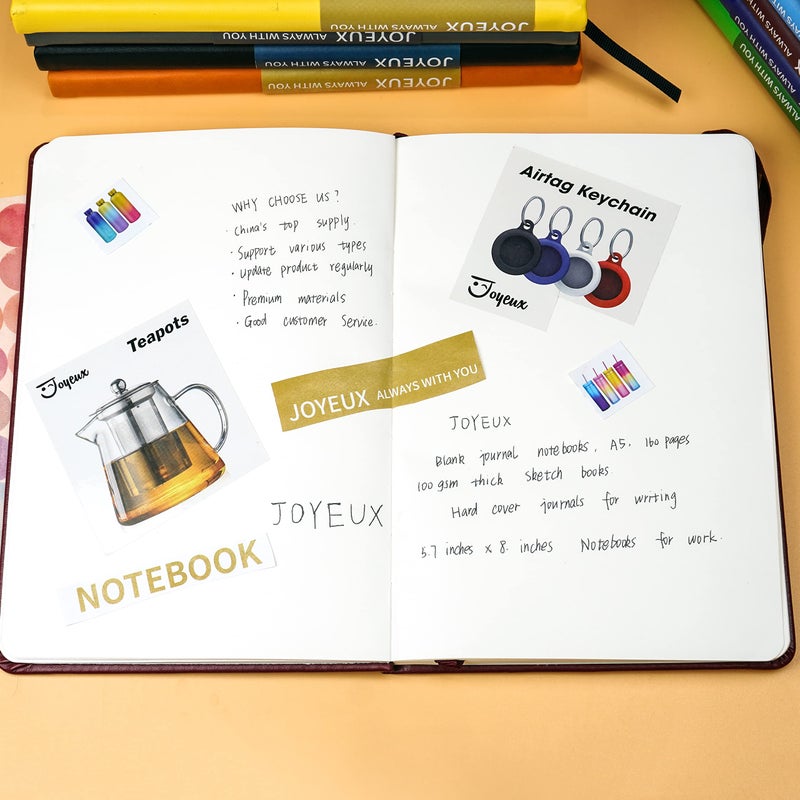 JOYEUX ALWAYS WITH YOU
JOYEUX ALWAYS WITH YOU
JOYEUX ALWAYS WITH YOU
JOYEUX ALWAYS WITH YOU
ALWAYS WITH YOU
ALWAYS WITH YOU
ALWAYS WITH YOU
WHY CHOOSE US?
· China's top supply.
· Support various types
· Update product regularly
· Premium materials
· Good customer Service.
Teapots
Joyeux
JOYEUX ALWAYS WITH YOU
JOYEUX
NOTEBOOK
Airtag Keychain
Joyeux
JOYEUX
Blank journal notebooks, A5. 160 pages
100 gsm thick Sketch books
Hard cover journals for writing
5.7 inches x 8. inches Notebooks for work.